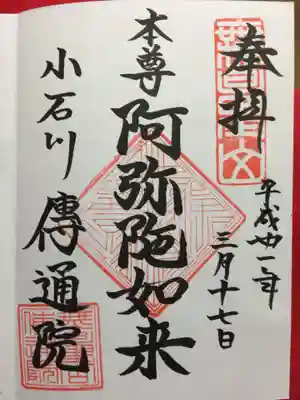 奉拝
平成卅一年
三月十七日
本尊 阿弥陀如来
小石川 傳通院